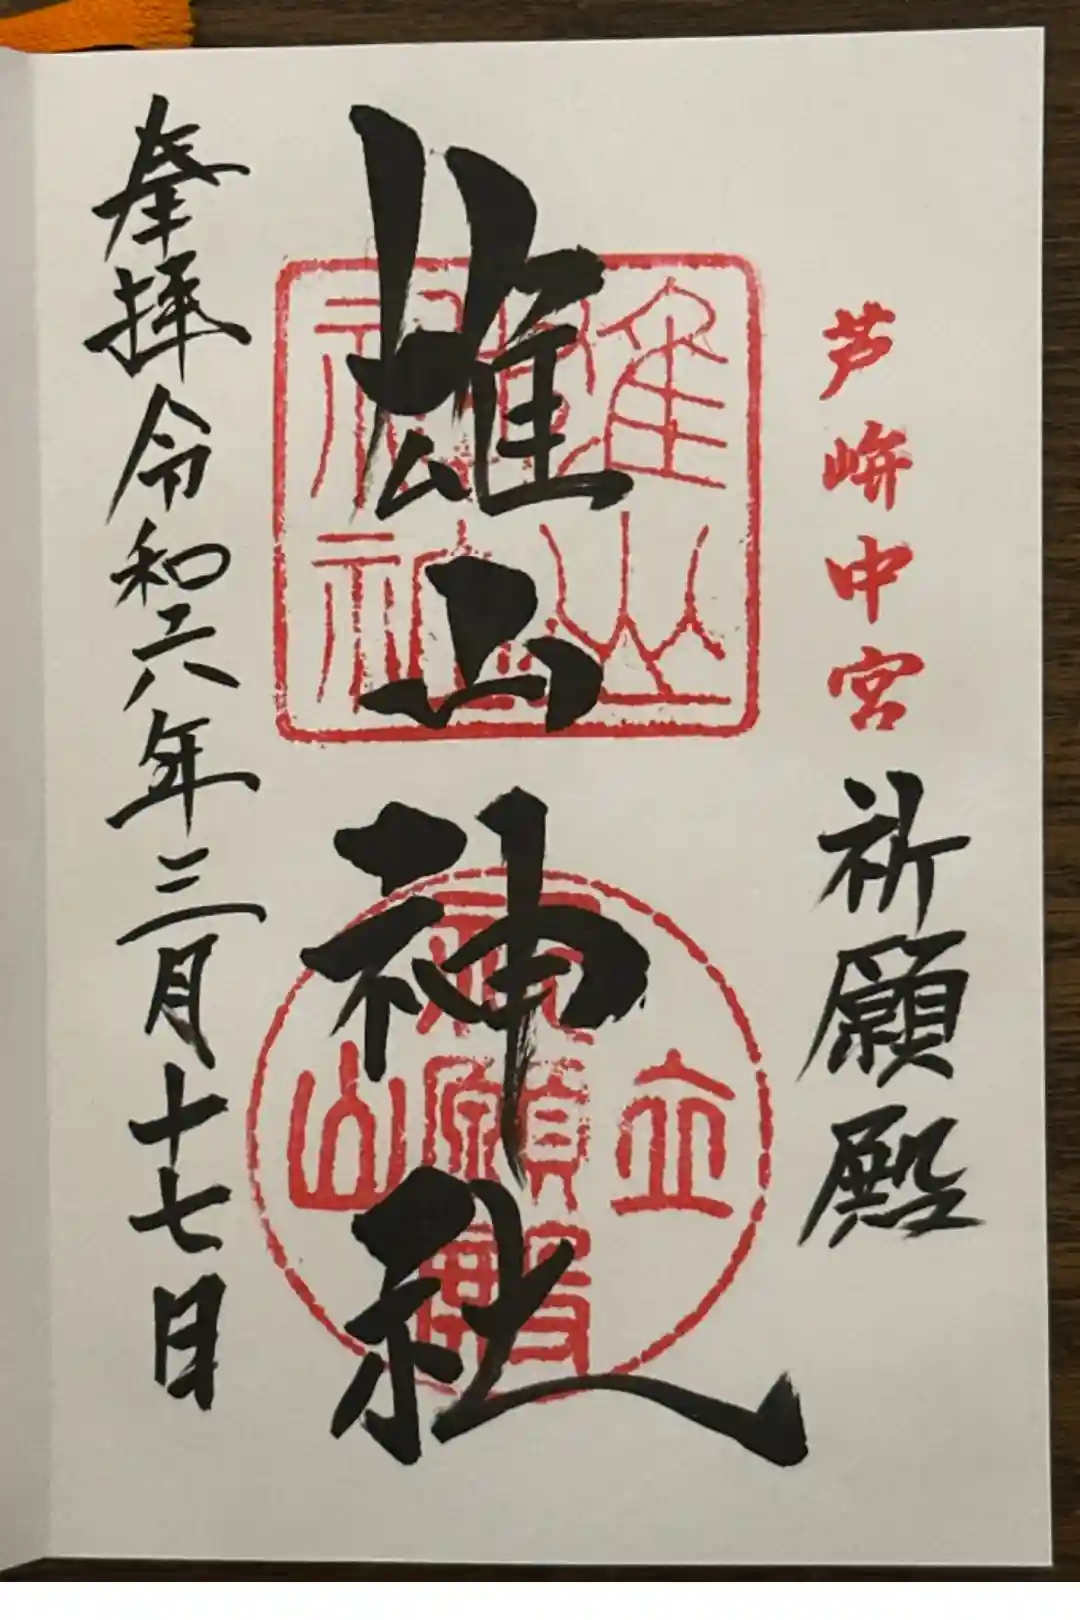 芦峅中宮
祈願殿
雄山神社
雄山神社
立山
祈願殿
奉拝 令和六年三月十七日